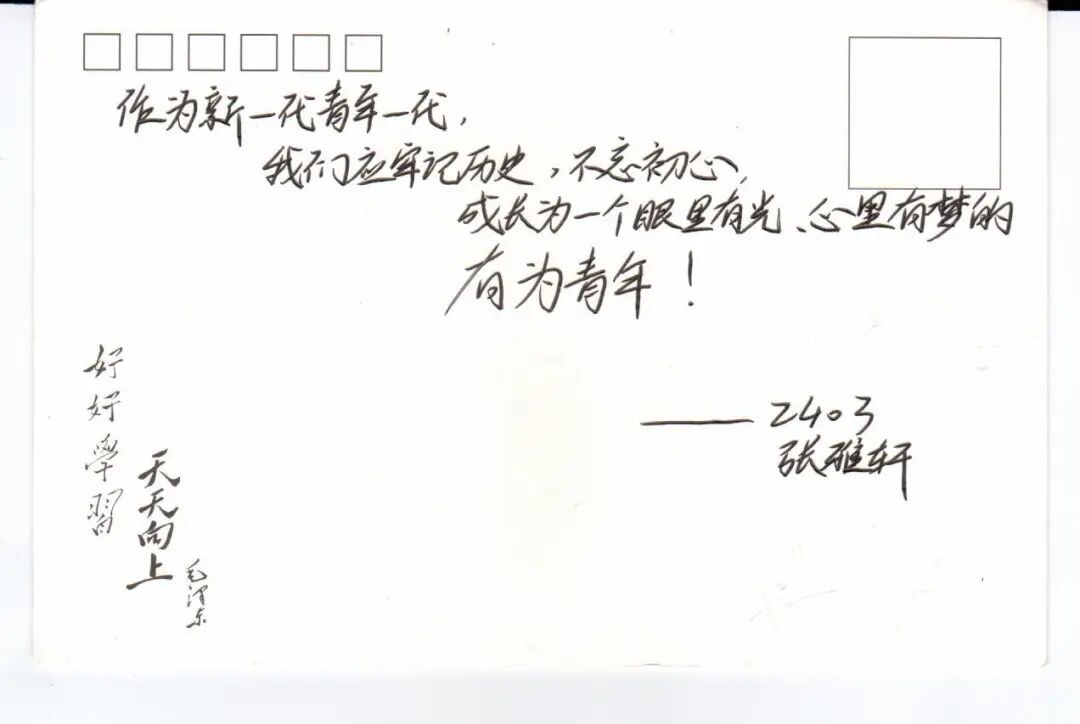 作为新一代青年一代，
我们应牢记历史，不忘初心，
成长为一个眼里有光、心里有梦的
有为青年！
—— 2403
张雅轩
好好學習
天天向上
毛泽东